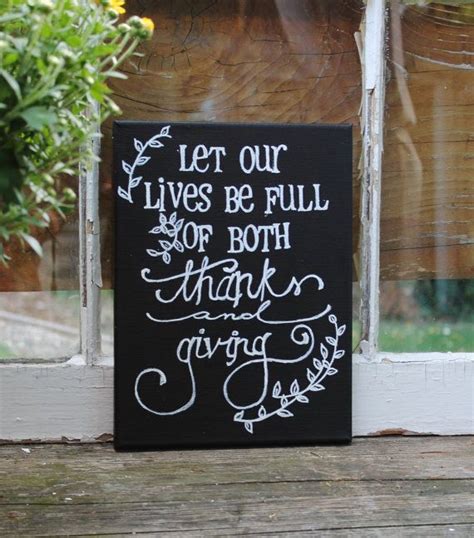 LET OUR
LIVES BE FULL
OF BOTH
thanks
and
giving